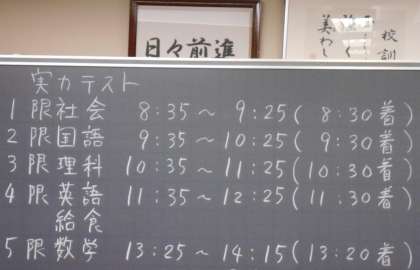 日々前進
校訓
実力テスト
1限社会 8:35～9:25(8:30着)
2限国語 9:35～10:25(9:30着)
3限理科 10:35～11:25(10:30着)
4限英語 11:35～12:25(11:30着)
給食
5限数学 13:25～14:15(13:20着)